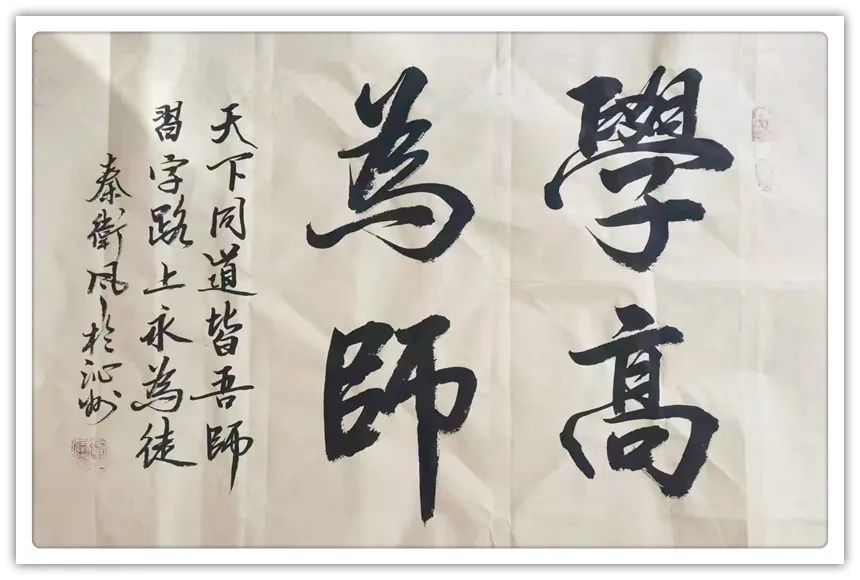 學高
為師
天下同道皆吾師
習字路上永為徒
秦衛風於沁州